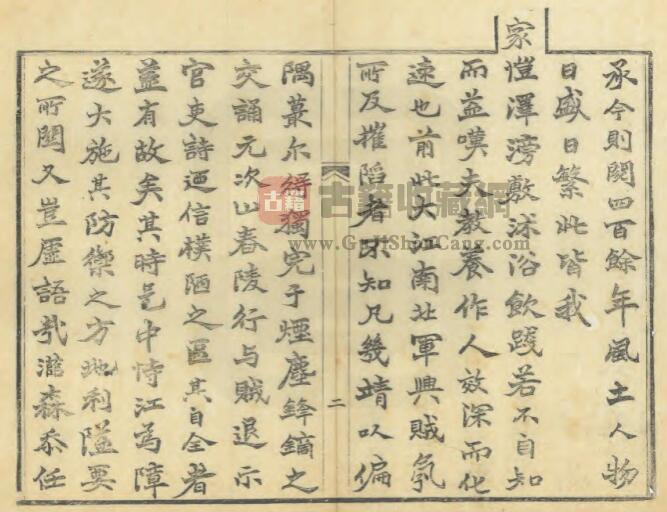 承今則閱四百餘年風土人物
日盛日繁此皆我
家愷澤滂敷沭浴飲踐若不自知
而益嘆夫教養作人效深而化
速也前此大江南北軍興賊氛
所及摧陷者不知凡幾靖以偏
二
隅蕞尔得獨完于煙塵鋒鏑之
交誦元次山舂陵行与賊退示
官吏詩迺信樸陋之區其自全者
益有故矣其時邑中恃江為障
遂大施其防禦之方地利隘要
之所關又豈虛語㢤瀧森忝任
古籍
古籍收藏網
www.GuJiShouCang.com